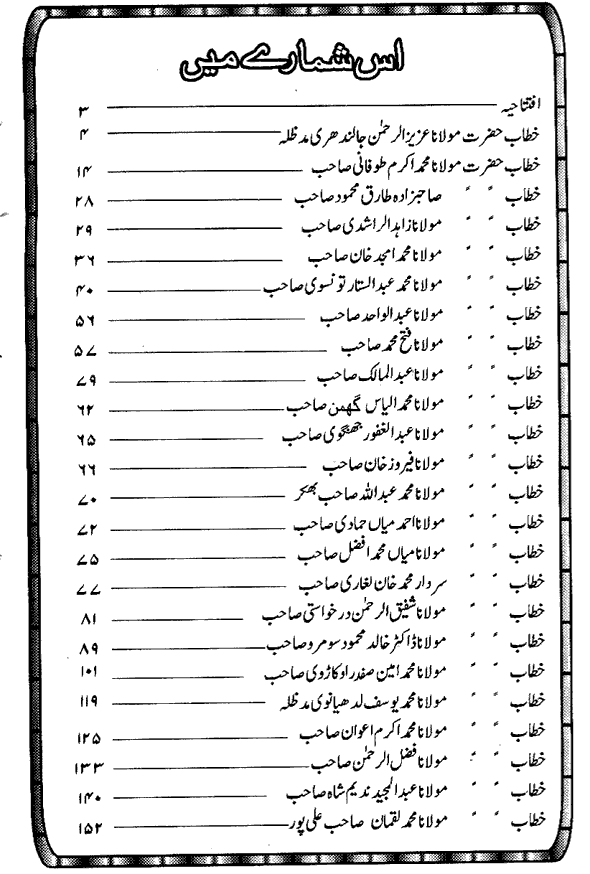 اس شمارے میں
افتتاحیہ ۳
خطاب حضرت مولانا عزیز الرحمٰن جالندھری مدظلہ ۴
خطاب حضرت مولانا محمد اکرم طوفانی صاحب ۱۴
خطاب " " صاحبزادہ طارق محمود صاحب ۲۸
خطاب " " مولانا زاہد الراشدی صاحب ۲۹
خطاب " " مولانا محمد امجد خان صاحب ۳۶
خطاب " " مولانا محمد عبدالستار تونسوی صاحب ۴۰
خطاب " " مولانا عبدالواحد صاحب ۵۶
خطاب " " مولانا فتح محمد صاحب ۵۷
خطاب " " مولانا عبدالمالک صاحب ۷۹
خطاب " " مولانا محمد الیاس گھمن صاحب ۶۲
خطاب " " مولانا عبدالغفور جھنگوی صاحب ۶۵
خطاب " " مولانا فیروز خان صاحب ۶۶
خطاب " " مولانا محمد عبداللہ صاحب بھکر ۷۰
خطاب " " مولانا احمد میاں حمادی صاحب ۷۲
خطاب " " مولانا میاں محمد افضل صاحب ۷۵
خطاب " " سردار محمد خان لغاری صاحب ۷۷
خطاب " " مولانا شفیق الرحمٰن درخواستی صاحب ۸۱
خطاب " " مولانا ڈاکٹر خالد محمود سومرو صاحب ۸۹
خطاب " " مولانا محمد امین صفدر اوکاڑوی صاحب ۱۰۱
خطاب " " مولانا محمد یوسف لدھیانوی مدظلہ ۱۱۹
خطاب " " مولانا محمد اکرم اعوان صاحب ۱۲۵
خطاب " " مولانا فضل الرحمٰن صاحب ۱۳۳
خطاب " " مولانا عبدالمجید ندیم شاہ صاحب ۱۴۰
خطاب " " مولانا محمد لقمان صاحب علی پور ۱۵۲